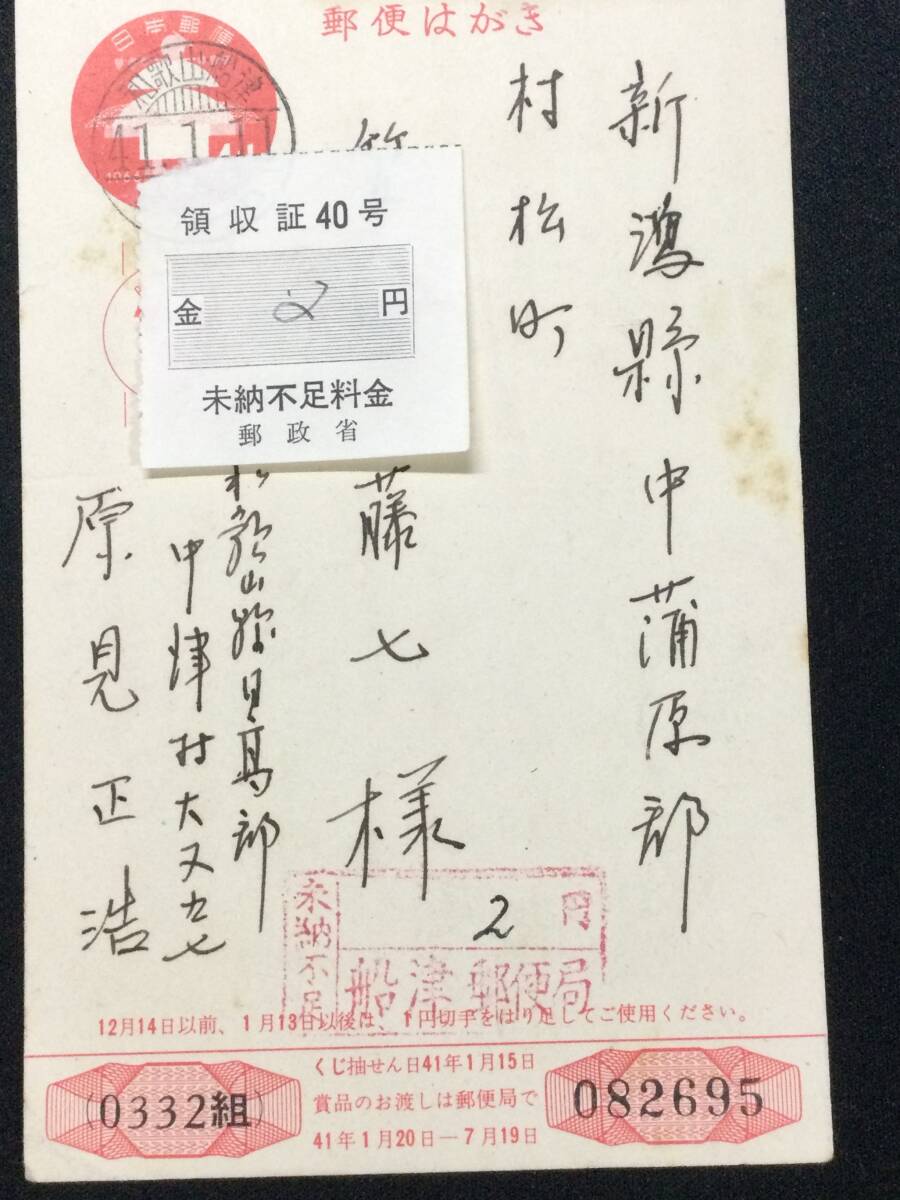 郵便はがき
日本郵便
和歌山船津
41.1.11
新潟縣中蒲原郡
村松町
藤七様
領収証40号
金 2 円
未納不足料金
郵政省
和歌山縣日高郡
中津村大又九七
原見正浩
未納不足
2 円
船津郵便局
12月14日以前、1月13日以後は、1円切手をはり足してご使用ください。
くじ抽せん日41年1月15日
賞品のお渡しは郵便局で
41年1月20日―7月19日
(0332組)
082695